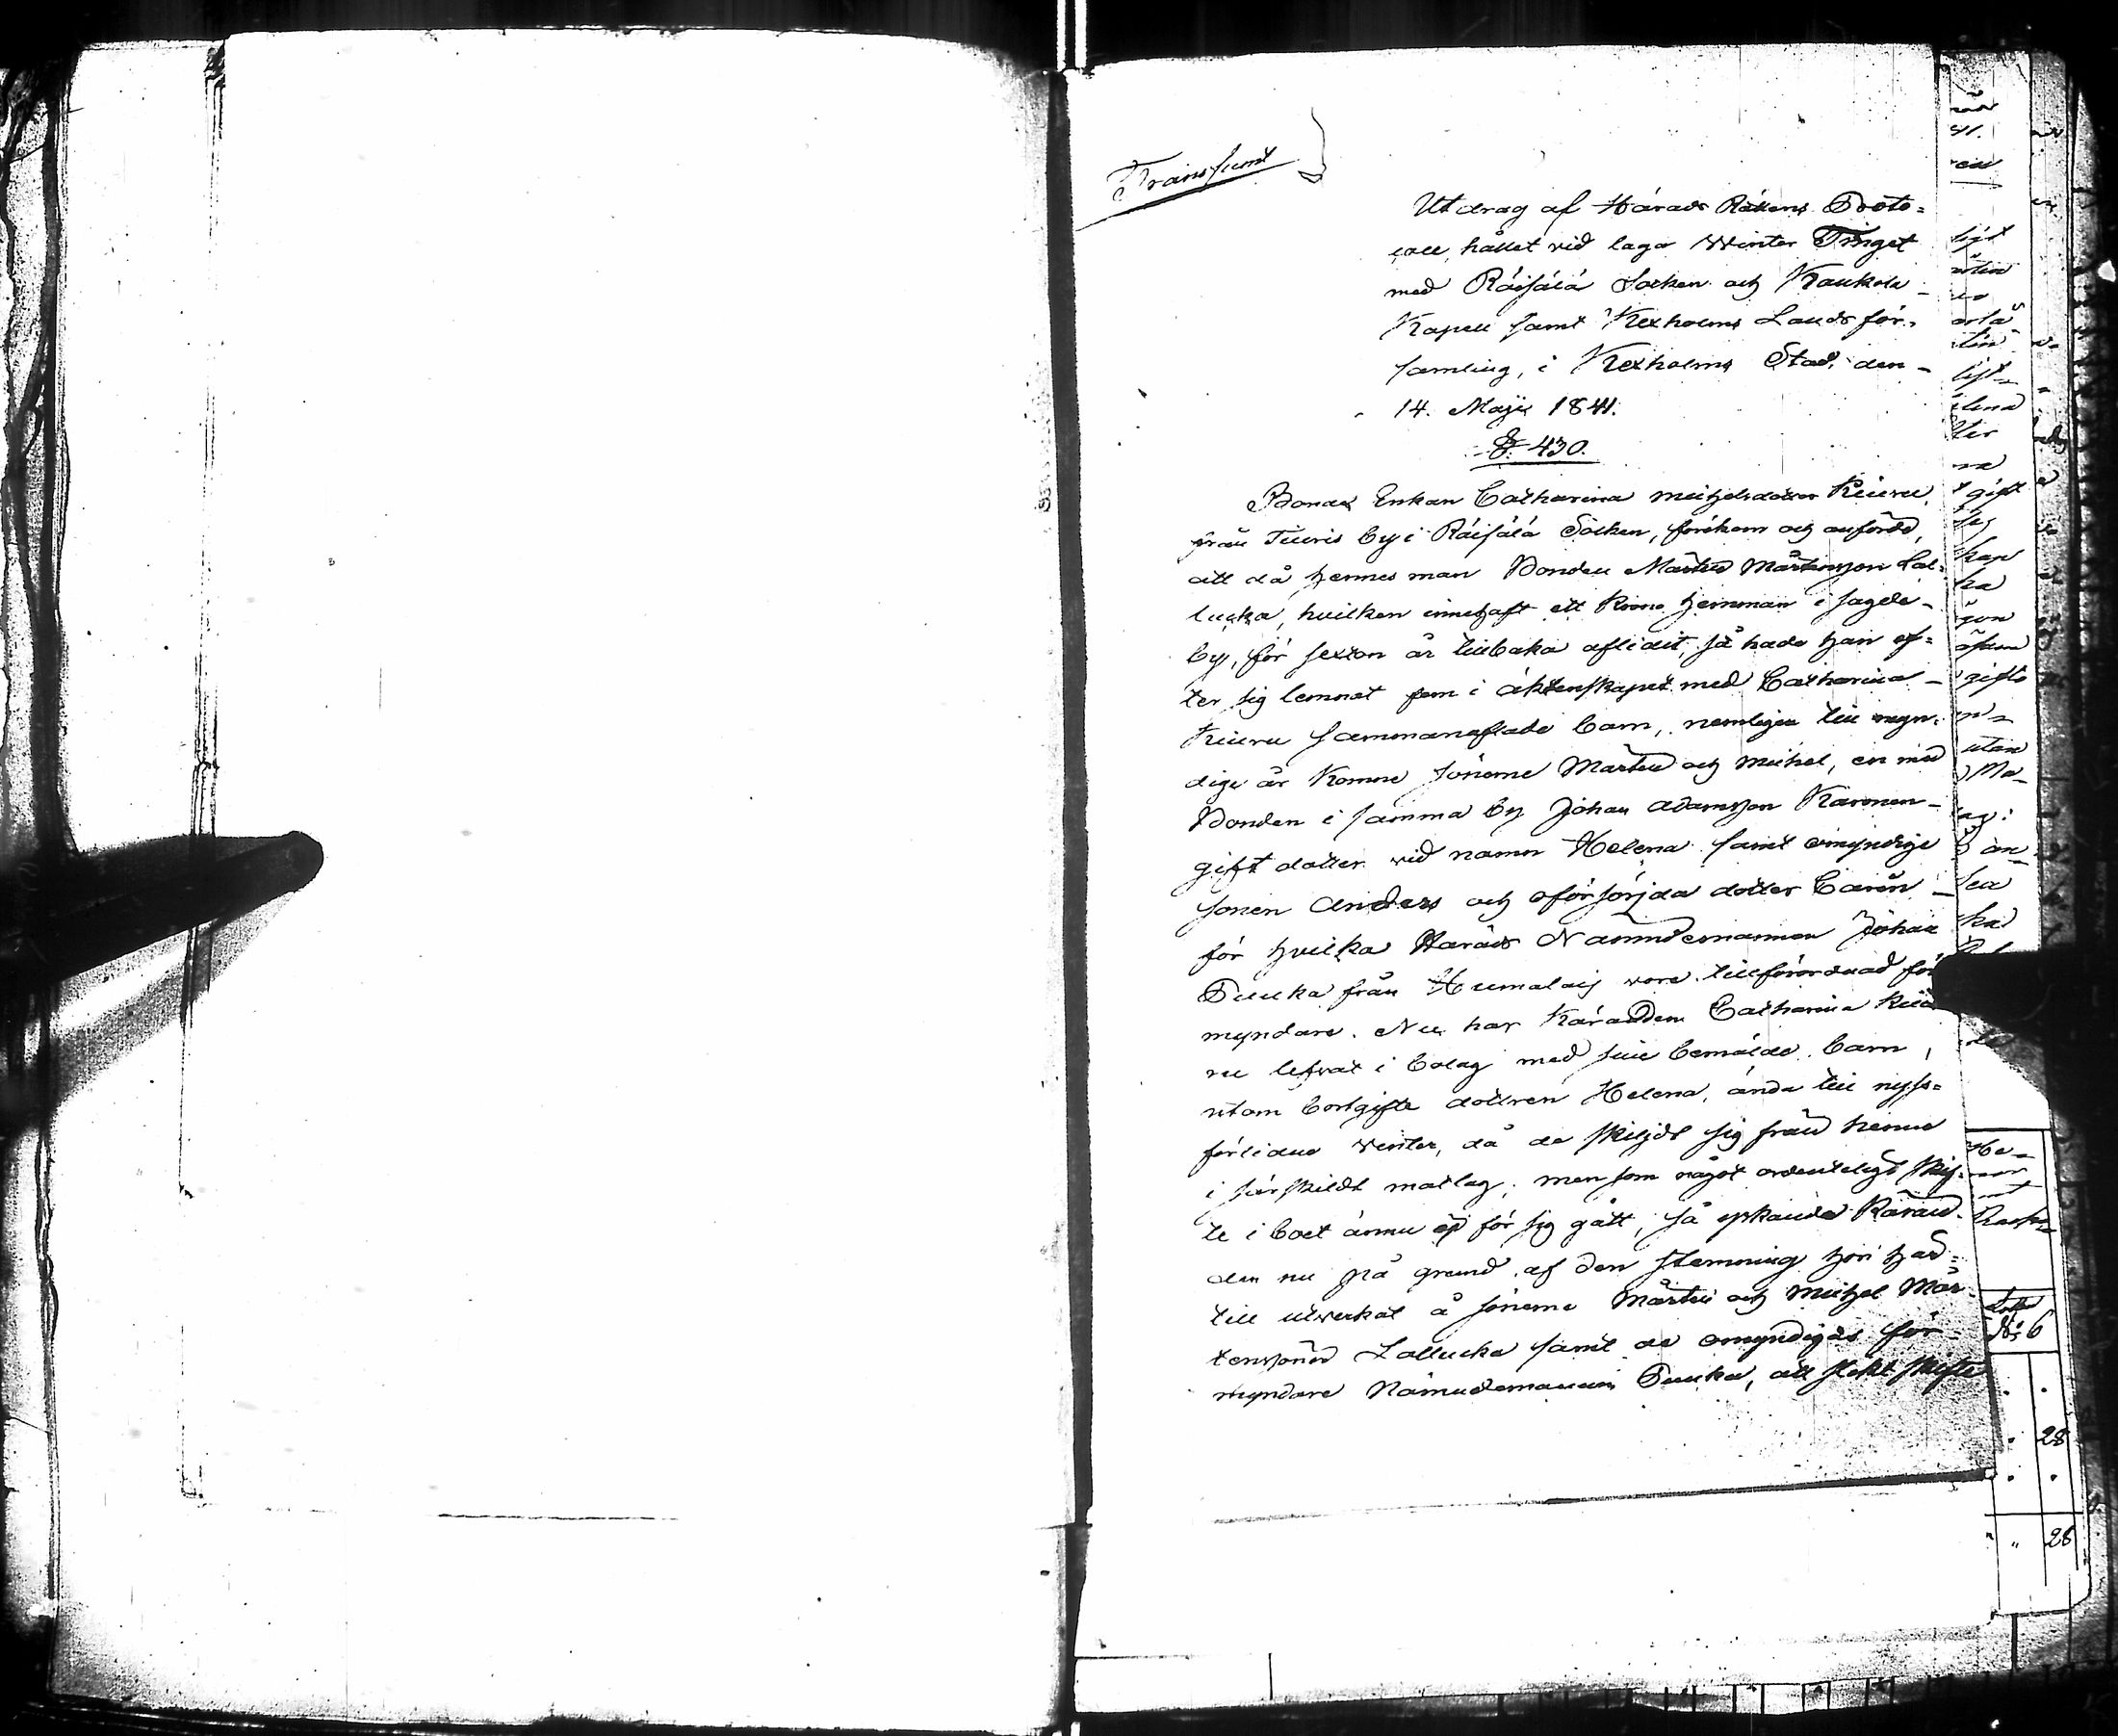 Transsumt
Utdrag af Härads Rättens Proto-
coll, hållet vid laga Winter Tinget
med Räisälä Socken och Kaukola
Kapell samt Kexholms Landsför-
samling, i Kexholms Stad den
14. Maji 1841.
§. 430.
Bonde Enkan Catharina Michelsdotter Kiuru,
från Tiuris by i Räisälä Socken, förekom och anförde,
att då hennes man Bonden Mårten Mårtensson Lal-
lucka, hvilken innehaft ett Krono hemman i sagde
by, för sexton år tillbaka aflidit, så hade han ef-
ter sig lemnat fem i äktenskapet med Catharina
Kiuru sammanaflade barn, nemligen till myn-
dige år komne sönerne Mårten och Michel, en med
Bonden i samma by Johan Adamsson Karonen
gift dotter vid namn Helena samt omyndige
sonen Anders och oförsörjda dotter Carin
för hvilka Härads Nämndemannen Johan
Puukka från Humalais vore tillförordnad för
myndare. Nu har Käranden Catharina Kiu
ru lefvat i bolag med sine bemälde barn,
utom bortgifte dottren Helena, ända till nyss-
förlidne winter, då de skiljdt sig från henne
i särskildt matlag; men som något ordenteligt skif-
te i boet ännu ej för sig gått, så yrkande Käran-
den nu på grund af den stemning hon här-
till utverkat å sönerne Mårten och Michel Mår-
tenssöner Lallucka samt de omyndigas för-
myndare Nämndemannen Puukka, att slikt skifte
gift
utan
Ma-
No 6
28
28